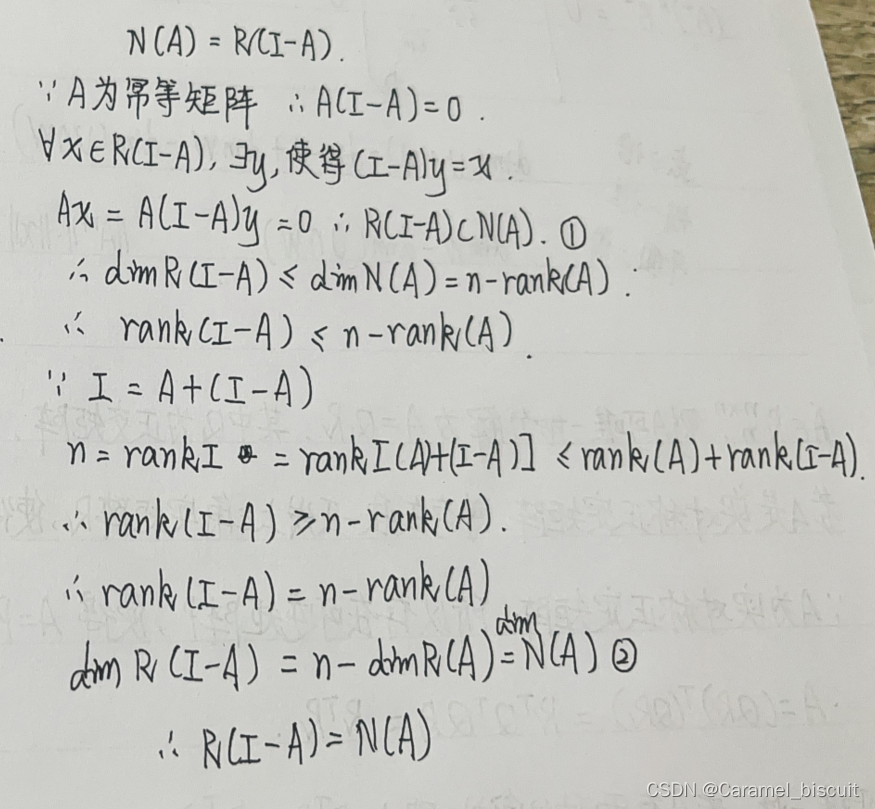 N(A) = R(I-A).
∵ A为幂等矩阵 ∴ A(I-A)=0.
∀x∈R(I-A), ∃y, 使得(I-A)y=x.
Ax = A(I-A)y = 0 ∴ R(I-A)⊂N(A). ①
∴ dimR(I-A) ≤ dimN(A) = n-rank(A).
∴ rank(I-A) ≤ n-rank(A).
∵ I = A+(I-A)
n = rankI = rank[(A)+(I-A)] ≤ rank(A)+rank(I-A).
∴ rank(I-A) ≥ n-rank(A).
∴ rank(I-A) = n-rank(A)
dim R(I-A) = n-dimR(A) = dim N(A) ②
∴ R(I-A) = N(A)
CSDN @Caramel_biscuit